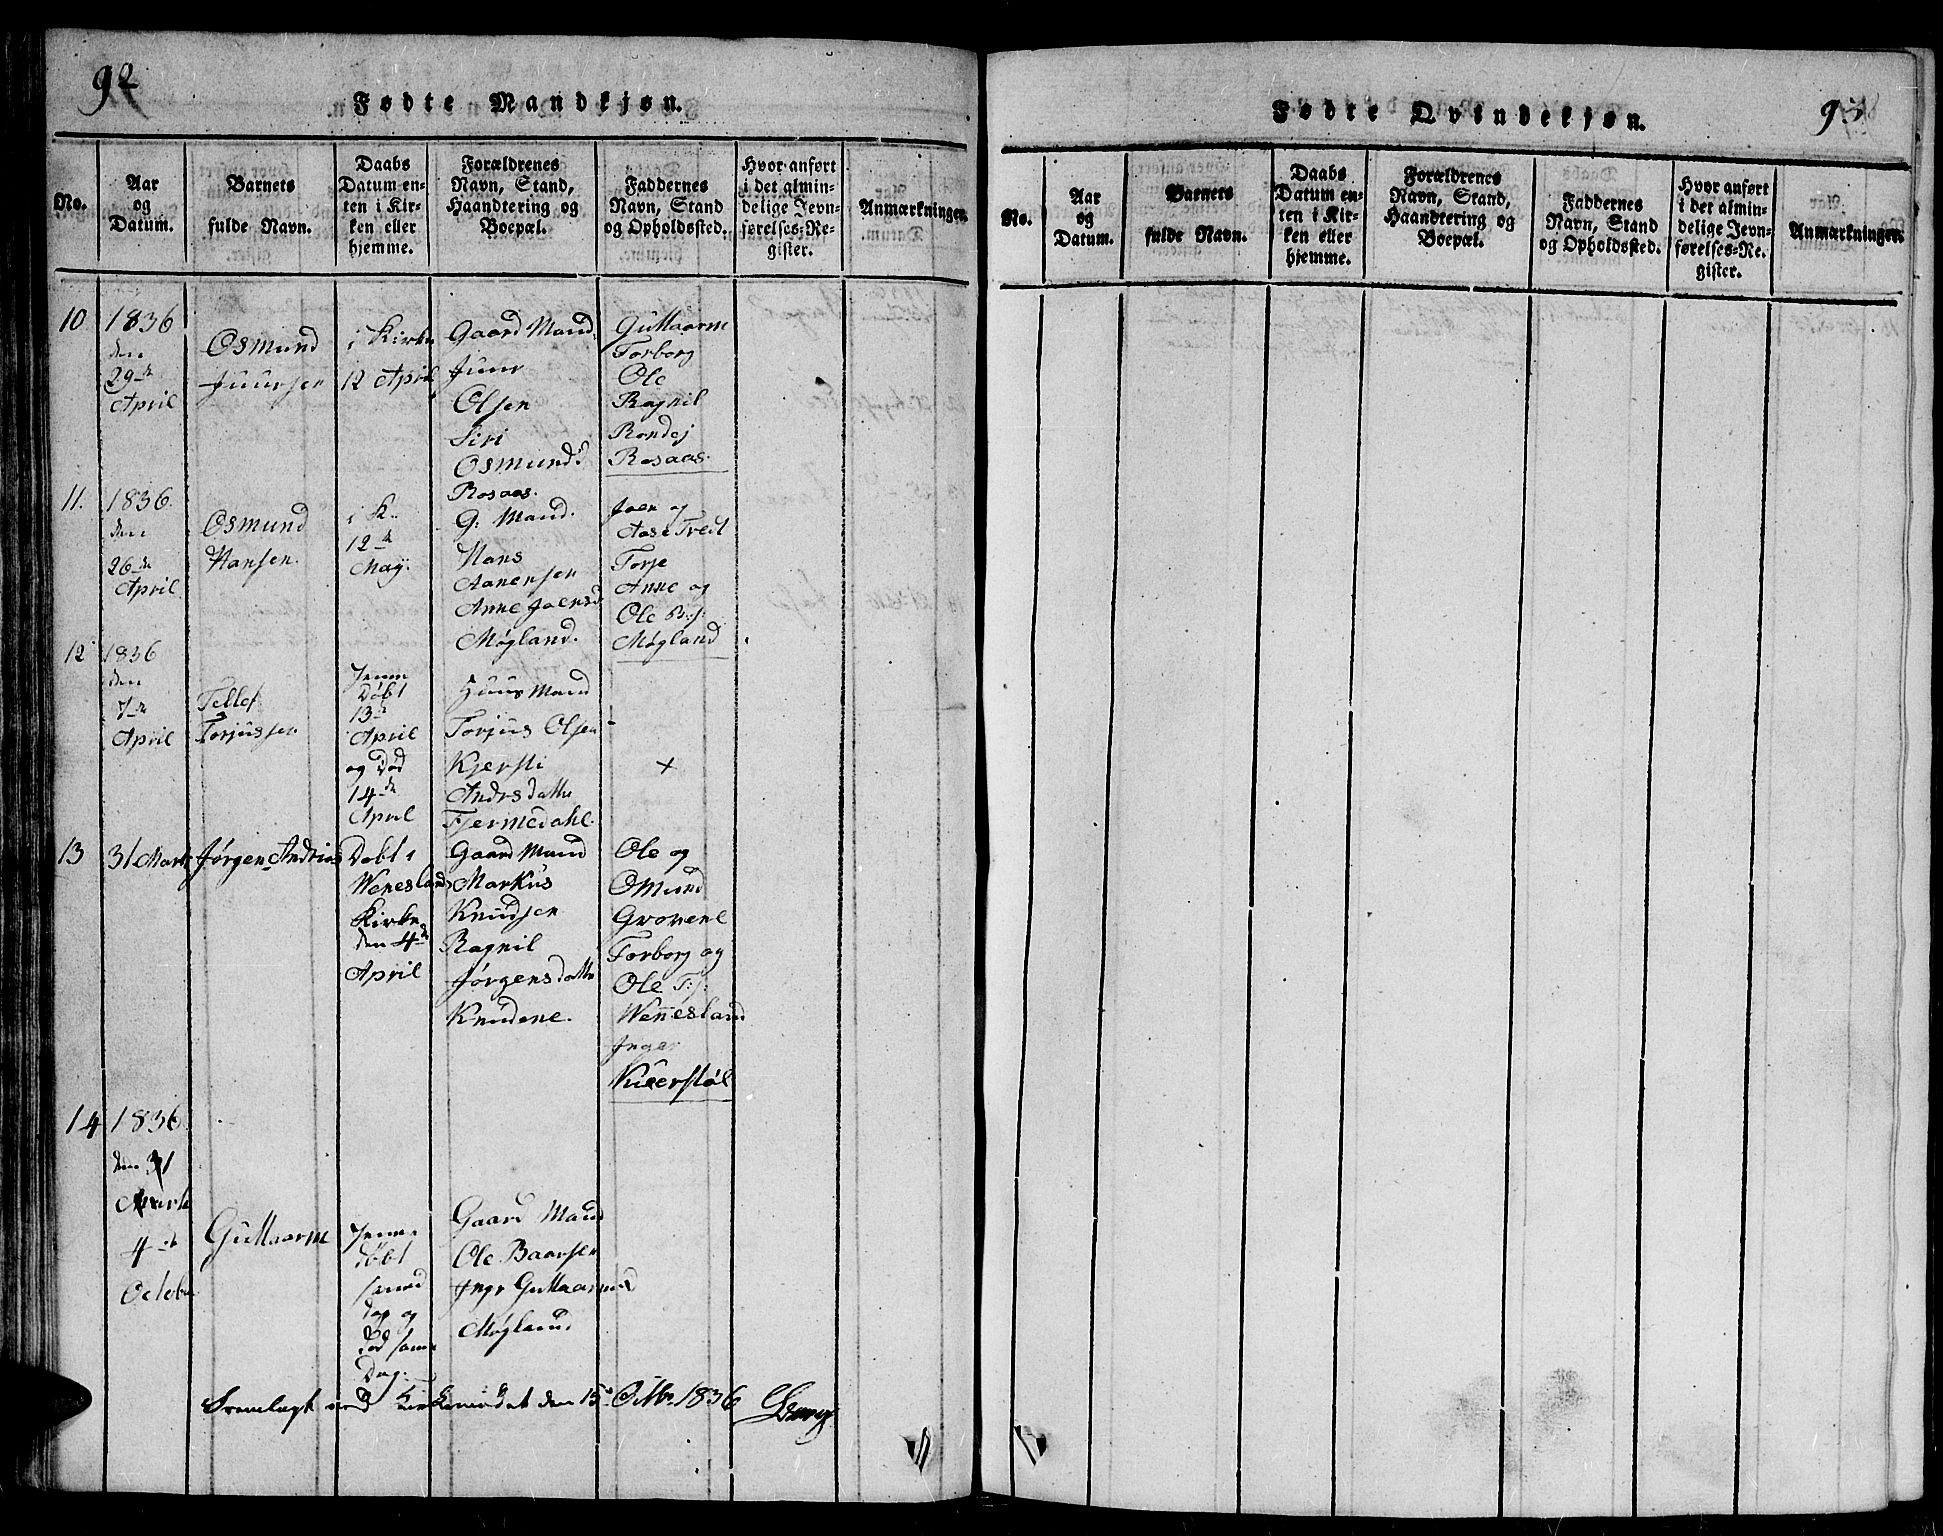 92
Fødte Mandkjøn.
No.
Aar
og
Datum.
Barnets
fulde Navn.
Daabs
Datum en-
ten i Kir-
ken eller
hjemme.
Forældrenes
Navn, Stand,
Haandtering og
Boepæl.
Faddernes
Navn, Stand
og Opholdssted.
Hvor anført
i det almin-
delige Jevn-
førelses-Re-
gister.
Anmærkninger.
10
1836
den
29de
April
Osmund
Juursen
i Kirke
12 April
Gaard Mand
Juur
Olsen
Siri
Osmundsd
Rosaas.
Guttorm
Torborg
Ole
Ragnil
Rondej
Rosaas.
11.
1836.
den
26de
April
Osmund
Hansen.
i K.
12de
May.
G: Mand.
Hans
Aanensen
Anne Joensd
Møgland.
Joen og
Aase Tvedt
Torje
Anne og
Ole B:s:
Møgland
12
1836
den
7de
April
Tellef
Torjussen
Jenne
Døbt
13de
April
og Død
14de
April
Huus Mand
Torjus Olsen
Kjersti
Andrsdatter
Fjermedahl.
+
13
31 Marts
Jørgen Andrias
Døbt i
Wenesland
Kirke
den 4de
April
Gaard Mand
Markus
Knudsen
Ragnil
Jørgensdatter
Knudene.
Ole og
Omund
Grovene
Torborg og
Ole T:s:
Wennesland
Inger
14
1836.
den 31
Marts
4de
October
Guttaarm
Jenne
Døbt
samme
dag og
død samme
Dag.
Gaard Mand
Ole Baarsen
Inger Guttaarmsd
Møgland.
Fremlagt ved Kirkemødet den 15de Octbr 1836
Fødte Qvindekjøn.
93
No.
Aar
og
Datum.
Barnets
fulde Navn.
Daabs
Datum en-
ten i Kir-
ken eller
hjemme.
Forældrenes
Navn, Stand,
Haandtering og
Boepæl.
Faddernes
Navn, Stand
og Opholdssted.
Hvor anført
i det almin-
delige Jevn-
førelses-Re-
gister.
Anmærkninger.